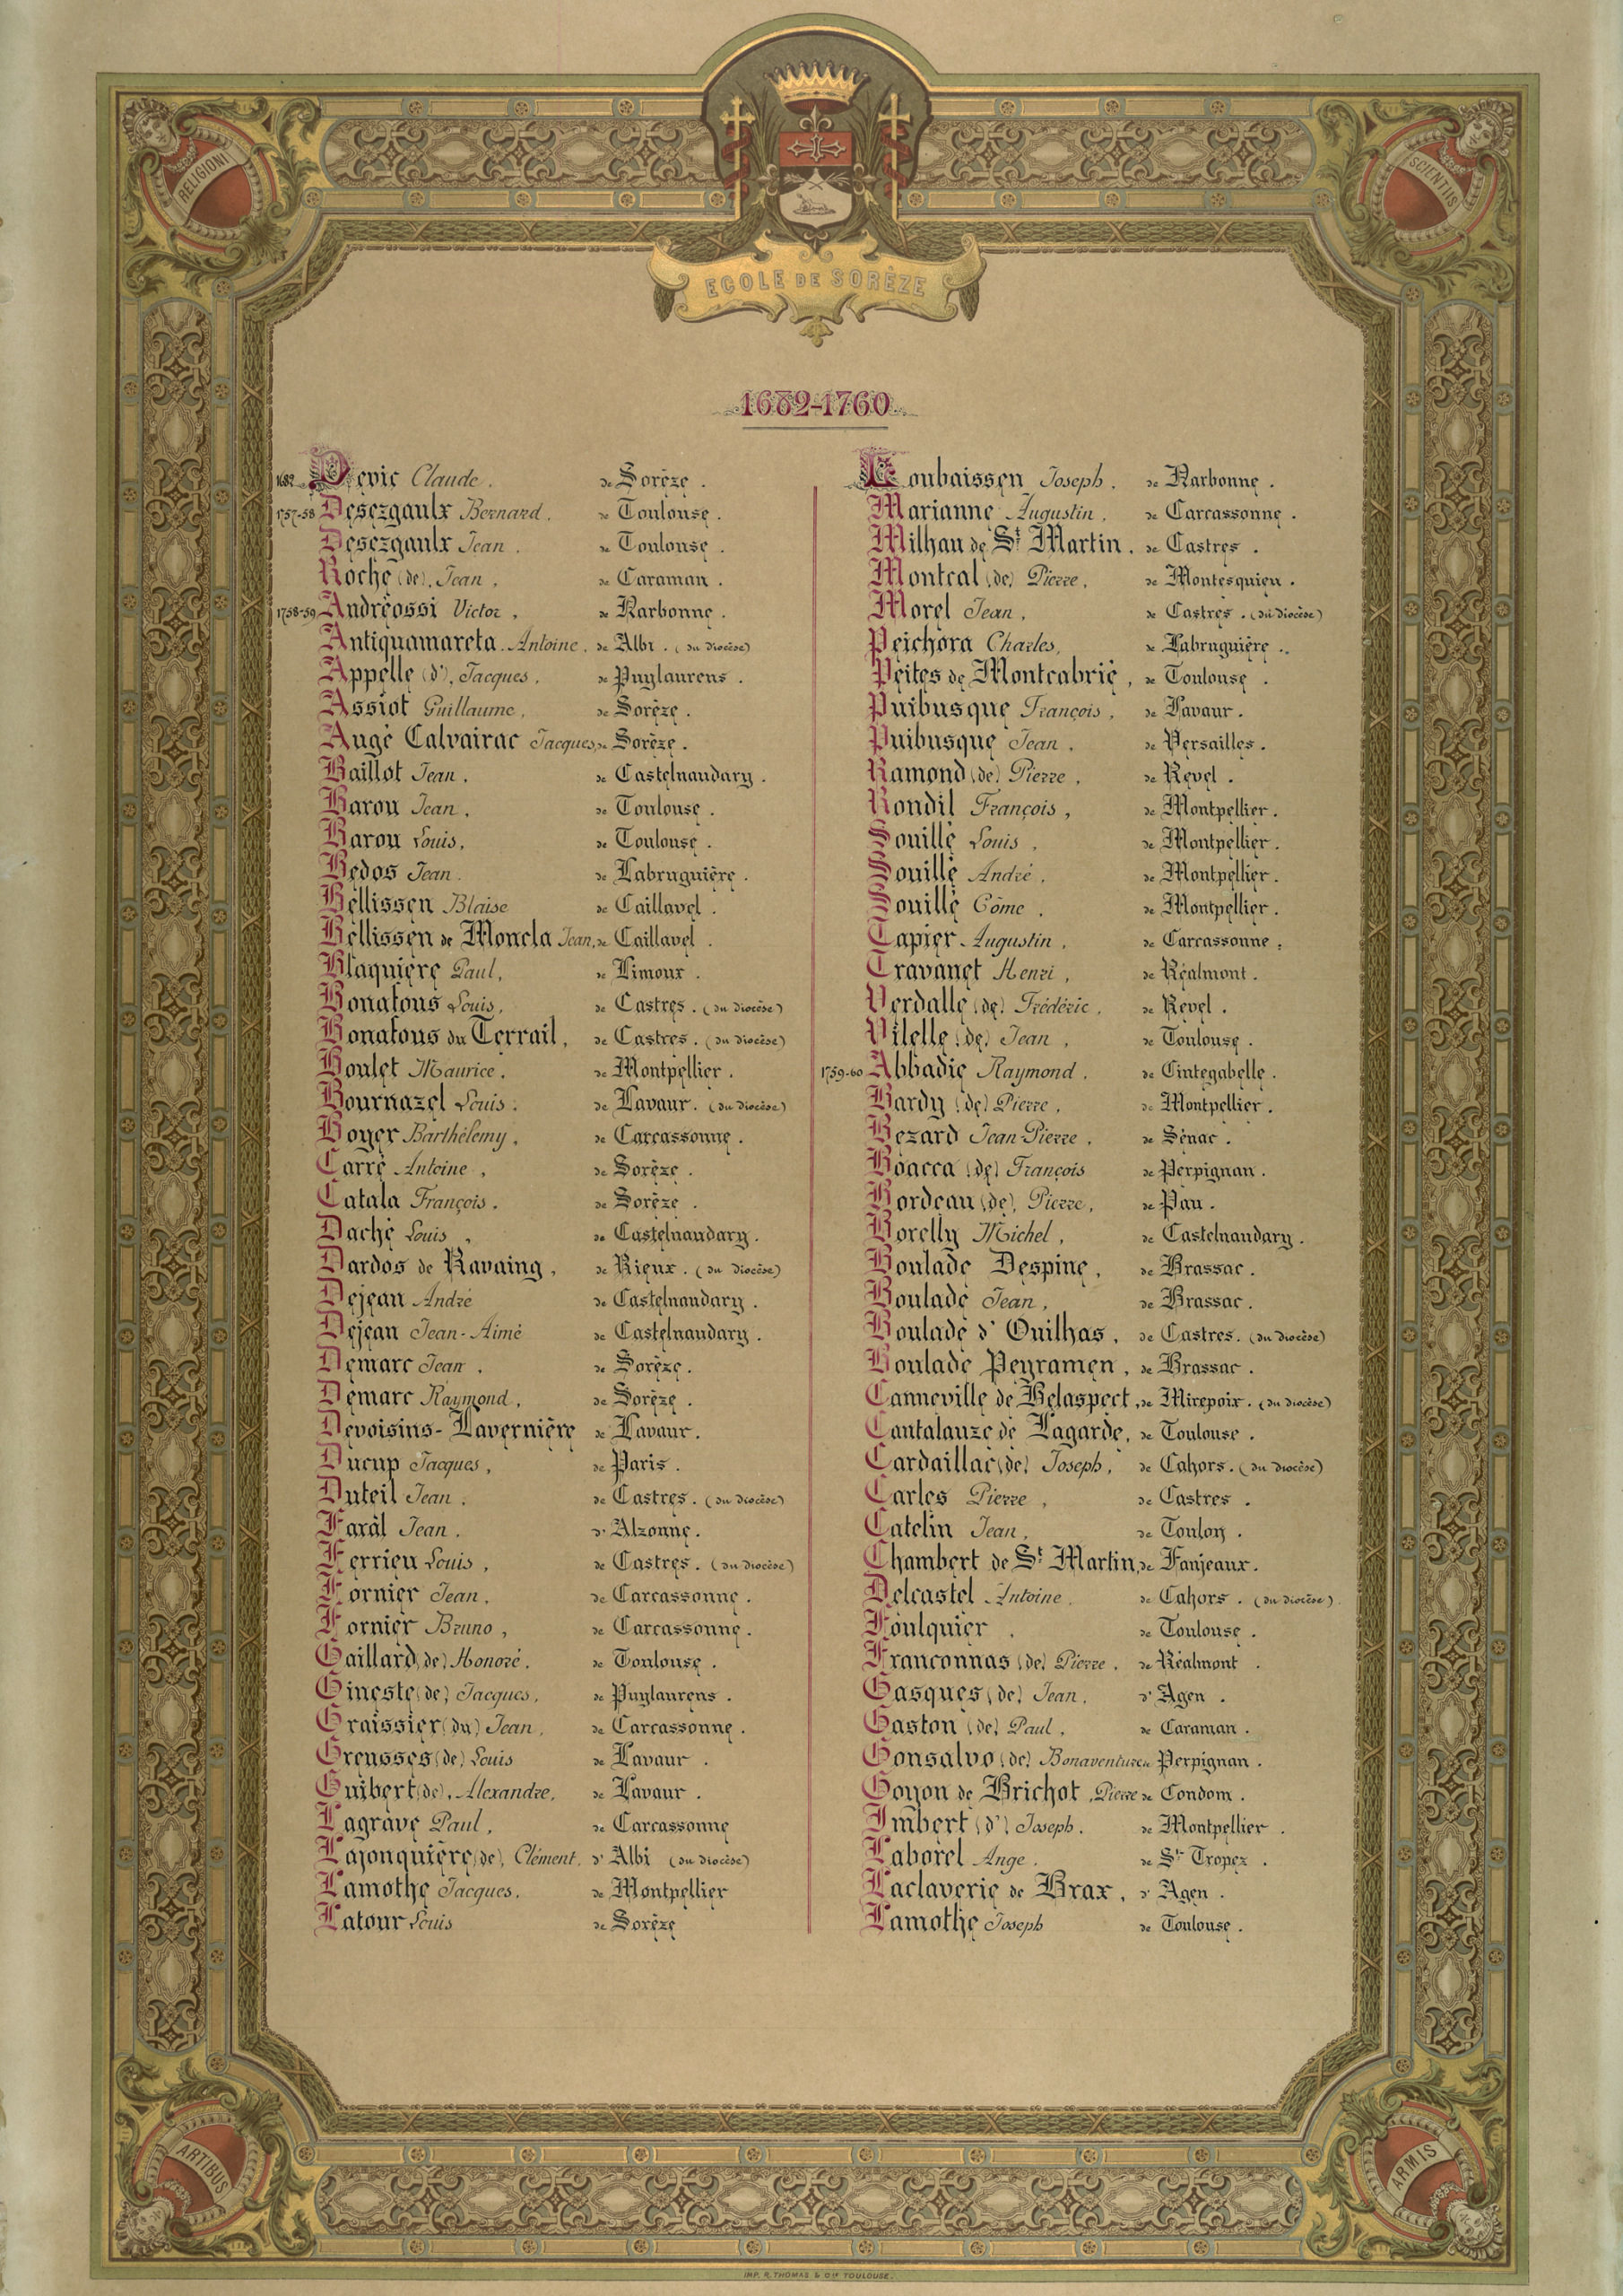 RELIGIONI
SCIENTIIS
ECOLE DE SORÈZE
1682-1760
1682 Devic Claude. de Sorèze.
1757-58 Desezgaulx Bernard. de Toulouse.
Desezgaulx Jean. de Toulouse.
Roche (de), Jean. de Caraman.
1758-59 Andréossi Victor, de Narbonne.
Antiquamareta Antoine, de Albi. (du diocèse)
Appelle (d'), Jacques. de Puylaurens.
Assiot Guillaume, de Sorèze.
Augé Calvairac Jacques, de Sorèze.
Baillot Jean. de Castelnaudary.
Barou Jean, de Toulouse.
Barou Louis, de Toulouse.
Bedos Jean. de Labruguière.
Bellissen Blaise de Caillavel.
Bellissen de Moncla Jean, de Caillavel.
Blaquière Paul, de Limoux.
Bonafous Louis, de Castres. (du diocèse)
Bonafous du Terrail, de Castres. (du diocèse)
Boulet Maurice. de Montpellier.
Bournazel Louis. de Lavaur. (du diocèse)
Boyer Barthélemy, de Carcassonne.
Carré Antoine, de Sorèze.
Catala François. de Sorèze.
Daché Louis, de Castelnaudary.
Dardos de Ravaing, de Rieux. (du diocèse)
Dejean André de Castelnaudary.
Dejean Jean-Aimé de Castelnaudary.
Demarc Jean. de Sorèze.
Demarc Raymond, de Sorèze.
Devoisins-Lavernière de Lavaur.
Ducup Jacques, de Paris.
Duteil Jean. de Castres. (du diocèse)
Faral Jean. d' Alzonne.
Ferrieu Louis, de Castres. (du diocèse)
Fornier Jean. de Carcassonne.
Fornier Bruno, de Carcassonne.
Gaillard (de) Honoré. de Toulouse.
Gineste (de) Jacques, de Puylaurens.
Graissier (du) Jean, de Carcassonne.
Greusses (de) Louis de Lavaur.
Guibert (de), Alexandre, de Lavaur.
Lagrave Paul, de Carcassonne
Lajonquière (de), Clément, d' Albi (du diocèse)
Lamothe Jacques. de Montpellier
Latour Louis de Sorèze
Loubaissen Joseph. de Narbonne.
Marianne Augustin, de Carcassonne.
Milhau de St Martin. de Castres.
Montcal (de) Pierre, de Montesquieu.
Morel Jean, de Castres. (du diocèse)
Peichora Charles, de Labruguière.
Peites de Montcabrié, de Toulouse.
Puibusque François, de Lavaur.
Puibusque Jean. de Versailles.
Ramond (de) Pierre, de Revel.
Rondil François, de Montpellier.
Souillé Louis, de Montpellier.
Souillé André, de Montpellier.
Souillé Côme, de Montpellier.
Tapier Augustin, de Carcassonne.
Travanet Henri, de Réalmont.
Verdalle (de) Frédéric, de Revel.
Vilelle (de) Jean, de Toulouse.
1759-60 Abbadie Raymond. de Cintegabelle.
Bardy (de) Pierre, de Montpellier.
Bezard Jean-Pierre, de Sénac.
Boacca (de) François de Perpignan.
Bordeau (de), Pierre, de Pau.
Borelly Michel, de Castelnaudary.
Boulade Despine, de Brassac.
Boulade Jean, de Brassac.
Boulade d' Ouilhas, de Castres. (du diocèse)
Boulade Peyramen, de Brassac.
Canneville de Belaspect, de Mirepoix. (du diocèse)
Cantalauze de Lagarde, de Toulouse.
Cardaillac (de) Joseph, de Cahors. (du diocèse)
Carles Pierre, de Castres.
Catelin Jean, de Toulon.
Chambert de St Martin, de Fanjeaux.
Delcastel Antoine. de Cahors. (du diocèse).
Foulquier. de Toulouse.
Franconnas (de) Pierre. de Réalmont.
Gasques (de) Jean. d' Agen.
Gaston (de) Paul, de Caraman.
Gonsalvo (de) Bonaventure de Perpignan.
Goyon de Brichot, Pierre de Condom.
Imbert (d') Joseph. de Montpellier.
Laborel Ange. de St Tropez.
Laclaverie de Brax, d' Agen.
Lamothe Joseph de Toulouse.
ARTIBUS
ARMIS
IMP. R. THOMAS & Cie TOULOUSE.